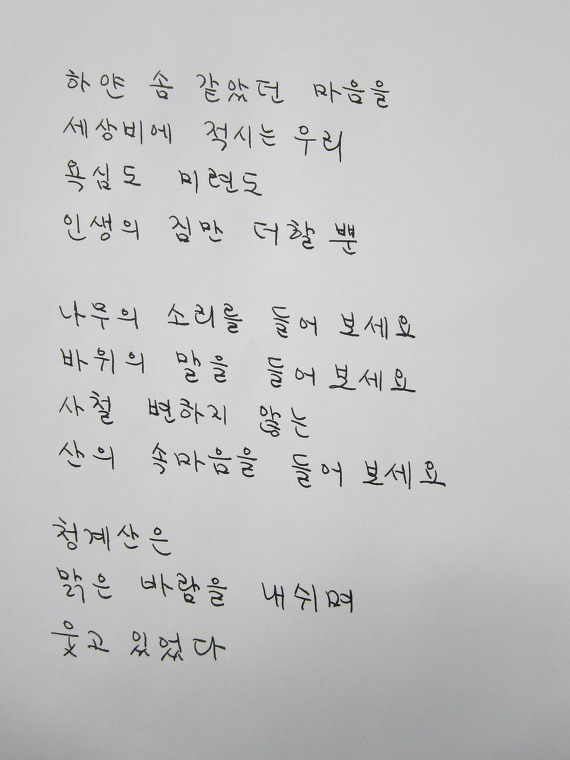 하얀 솜 같았던 마음을
세상비에 적시는 우리
욕심도 미련도
인생의 짐만 더할 뿐
나무의 소리를 들어 보세요
바위의 말을 들어 보세요
사철 변하지 않는
산의 속마음을 들어 보세요
청계산은
맑은 바람을 내쉬며
웃고 있었다